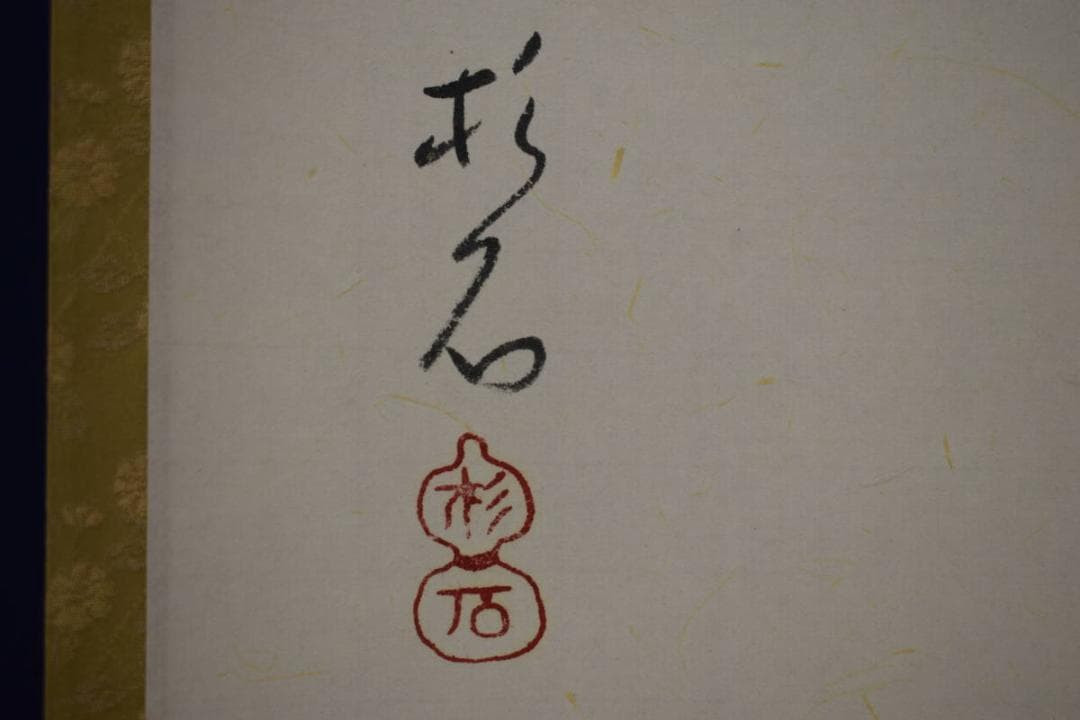 杉石
杉
石